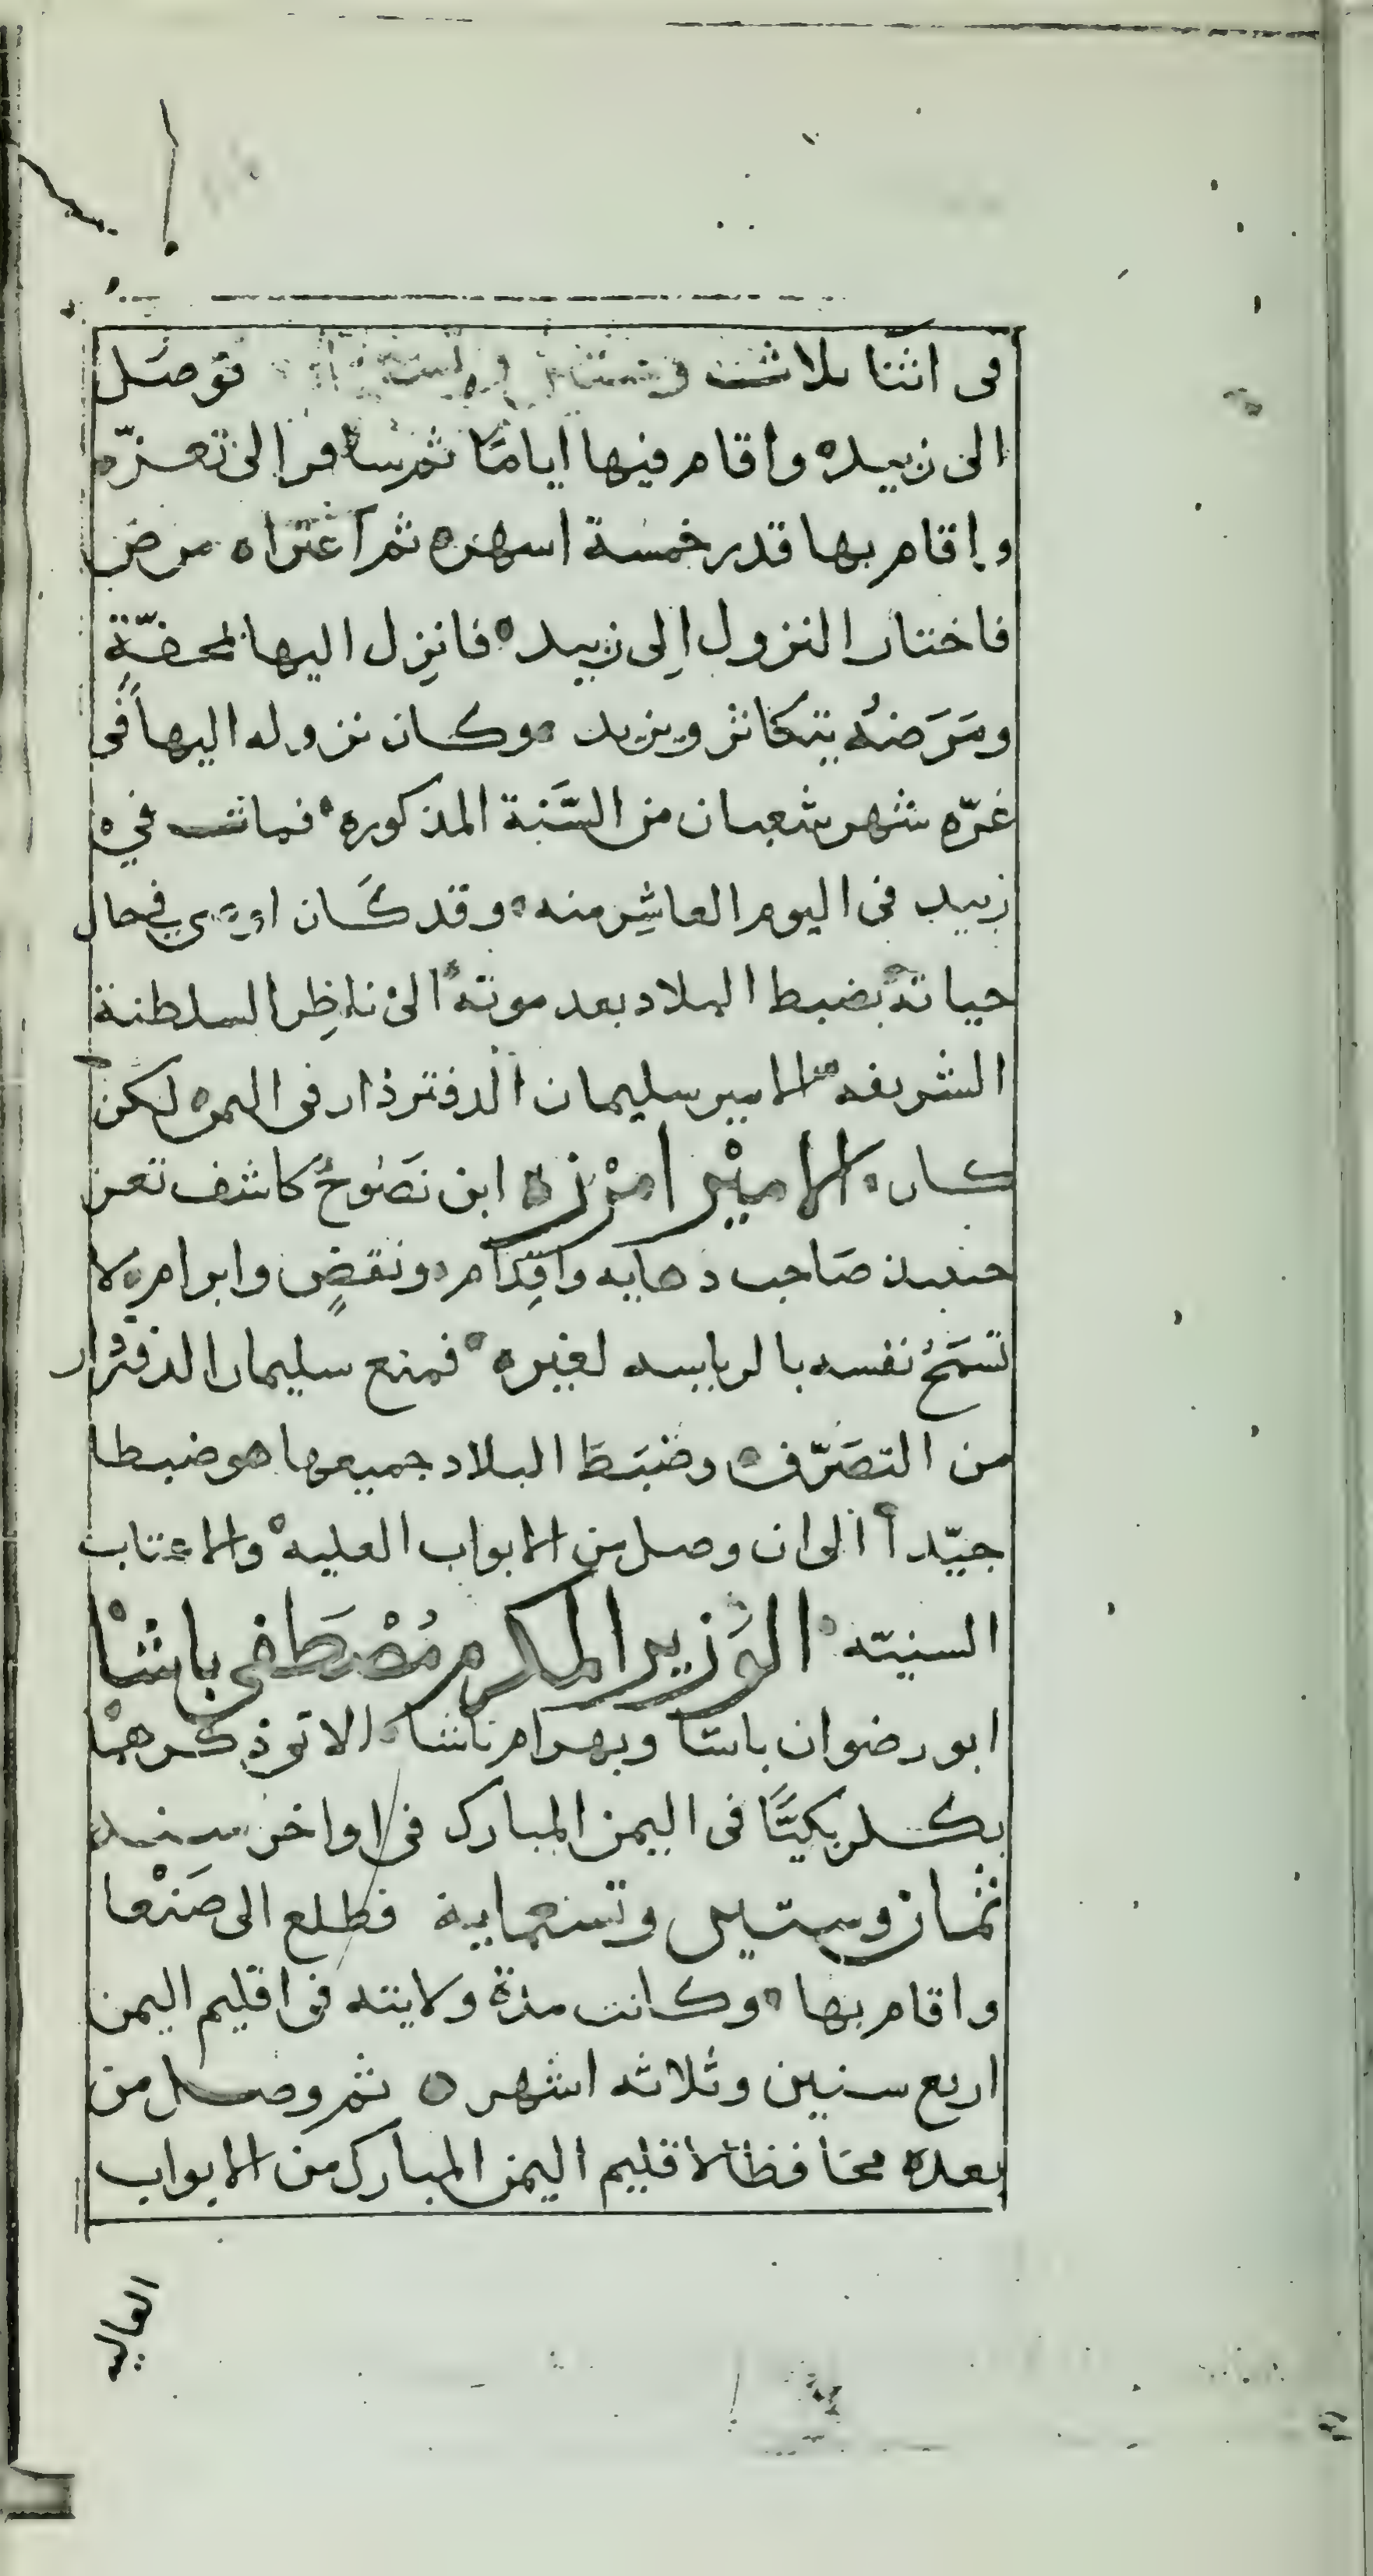 فى اثنا ثلاث وستين فوصل
الى زبيده واقام فيها اياما ثم سافر الى تعزّه
واقام بها قدر خمسة اسهره ثم اعتراه مرض
فاختار النزول اِلى زبيد فانزِل اليها بمحفّةٍ
ومَرَضهُ يتكاثر ويزيد وكان نزوله اليها فى
غرّه شهر شعبان من السَّنة المذكوره فمات في
زبيد فى اليوم العاشِر منه وقد كَان اوصى في حال
حياته بضبط البلاد بعد موته الى ناظِر السلطنة
الشريفه الامير سليمان الدفترذار فى اليمن لكن
كان الامِيْر امْرَزه ابن نَصُوحُ كاشف تعز
حينيذ صَاحب دهايه واقِدَام ونقضٍ وابرام لا
تسمَحُ نفسه بالرياسه لغيره فمنع سليمان الدفتردار
من التصَرّف وضبَطَ البلاد جميعها هو ضبطا
جيّداً الى ان وصل من الابواب العليه والاعتاب
السنيّه الوَزير المكرم مُصْطَفى باشا
ابو رضوان باشا وبهرام باشا الاتى ذكرهما
بكلربكيًّا فى اليمن المبارك فى اواخر سنه
ثمان وستين وتسعماية فطلع الى صَنْعا
واقام بها وكانت مدة ولايته فى اقليم اليمن
اربع سنين وثلاثه اشهر ثم وصل من
بعده محَافظا لاقليم اليمن المبارك من الابواب
العاليه